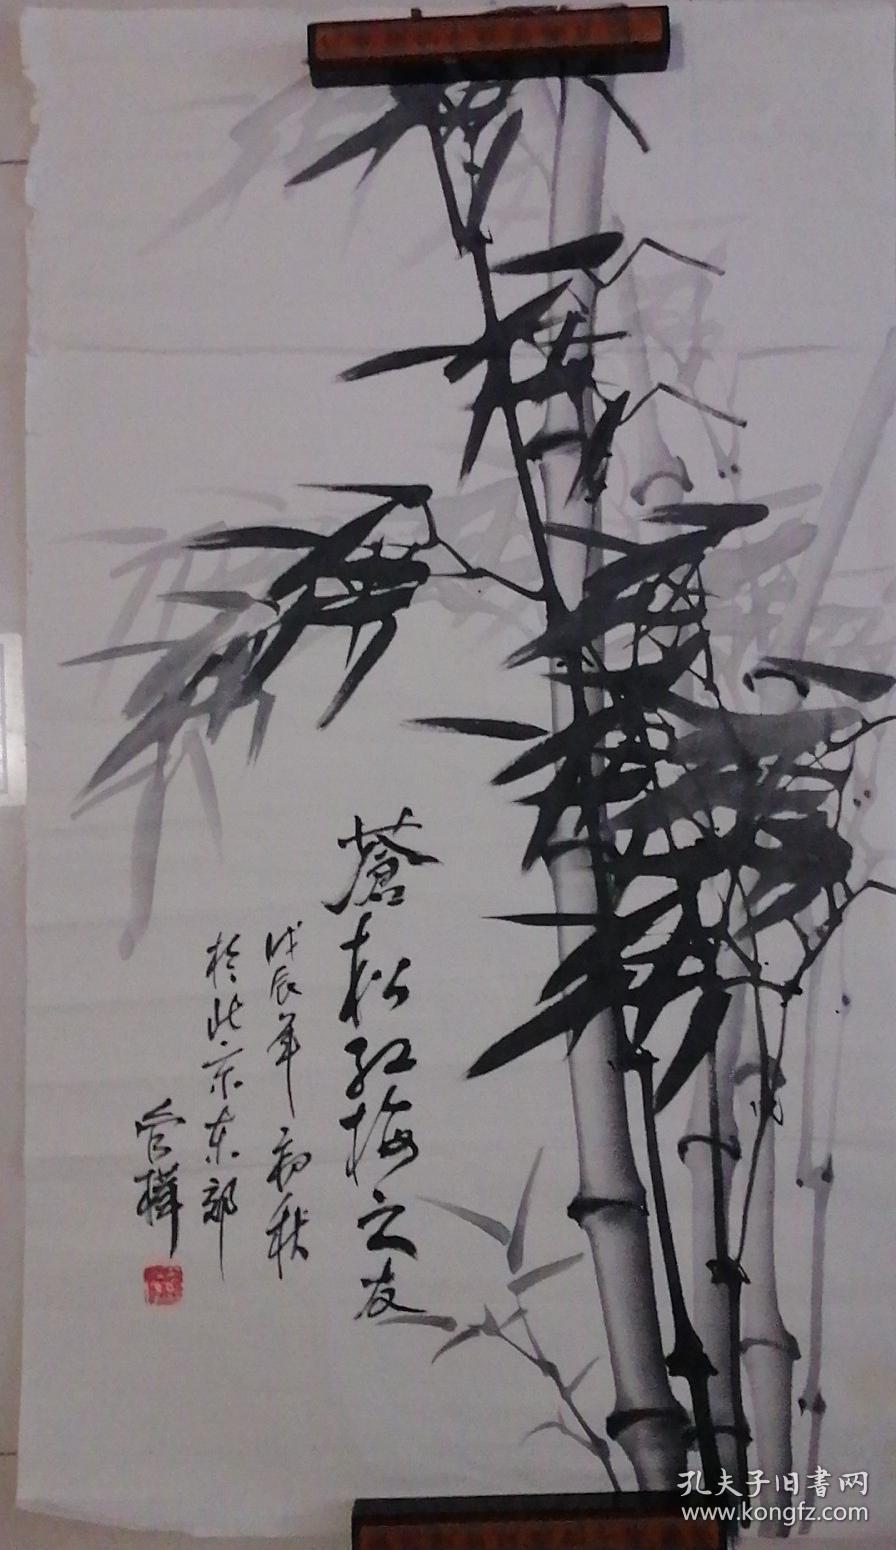 蒼松红梅之友
戊辰年初秋
於北京东郊
管桦
孔夫子旧書网
www.kongfz.com